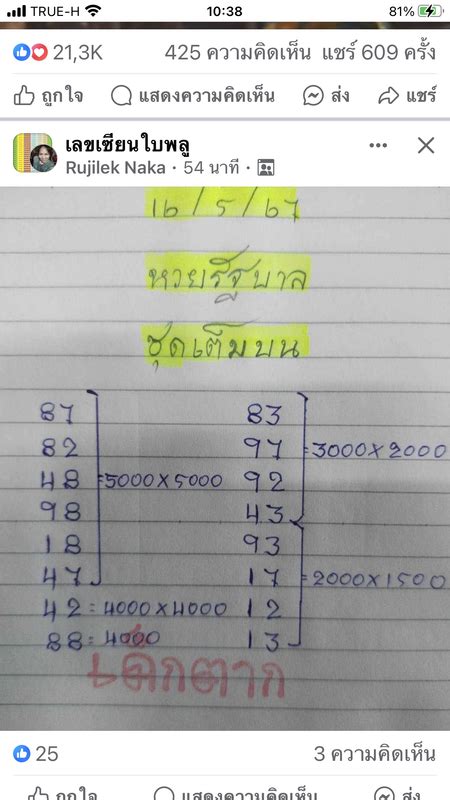 TRUE-H 10:38 81%
21,3K 425 ความคิดเห็น แชร์ 609 ครั้ง
ถูกใจ แสดงความคิดเห็น ส่ง แชร์
เลขเซียนใบพลู
Rujilek Naka · 54 นาที ·
16/5/67
หวยรัฐบาล
ชุดเต็มบน
87 83
82 97 =3000×2000
48 =5000×5000 92
98 43
18 93
47 17 =2000×1500
42=4000×4000 12
88=4000 13
เด็กตาก
25 3 ความคิดเห็น
ถูกใจ แสดงความคิดเห็น ส่ง